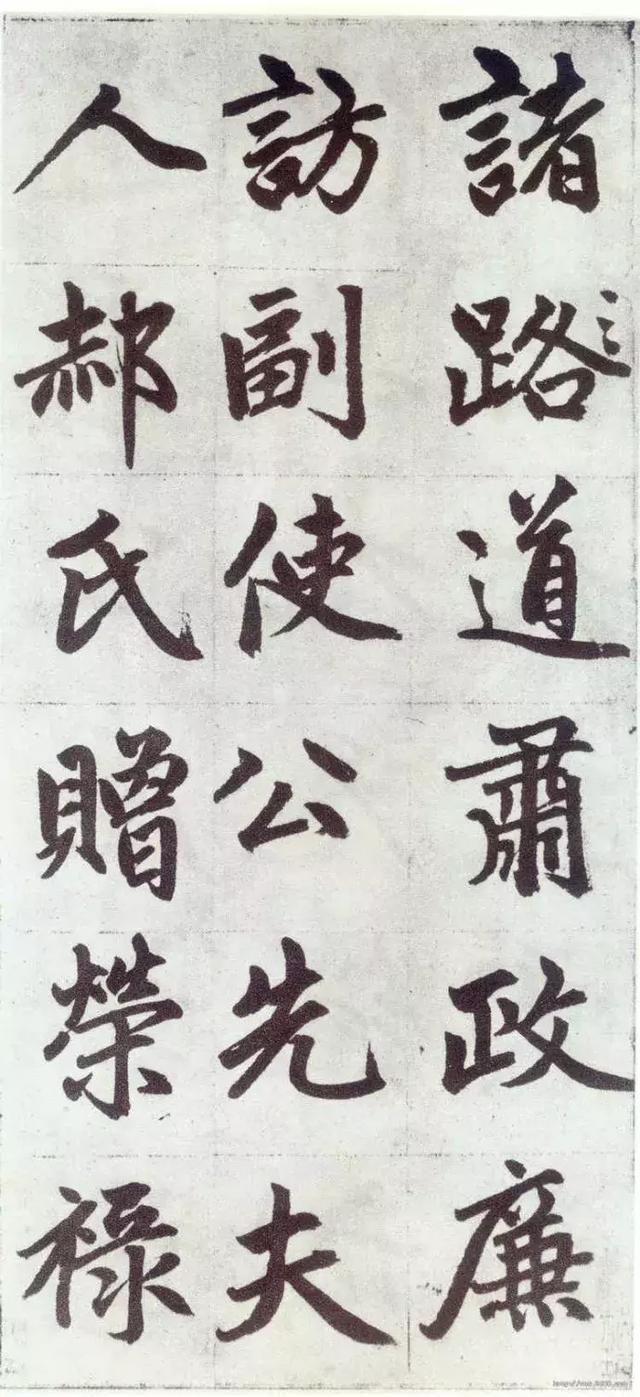 諸路道肅政廉
訪副使公先夫
人郝氏贈榮禄